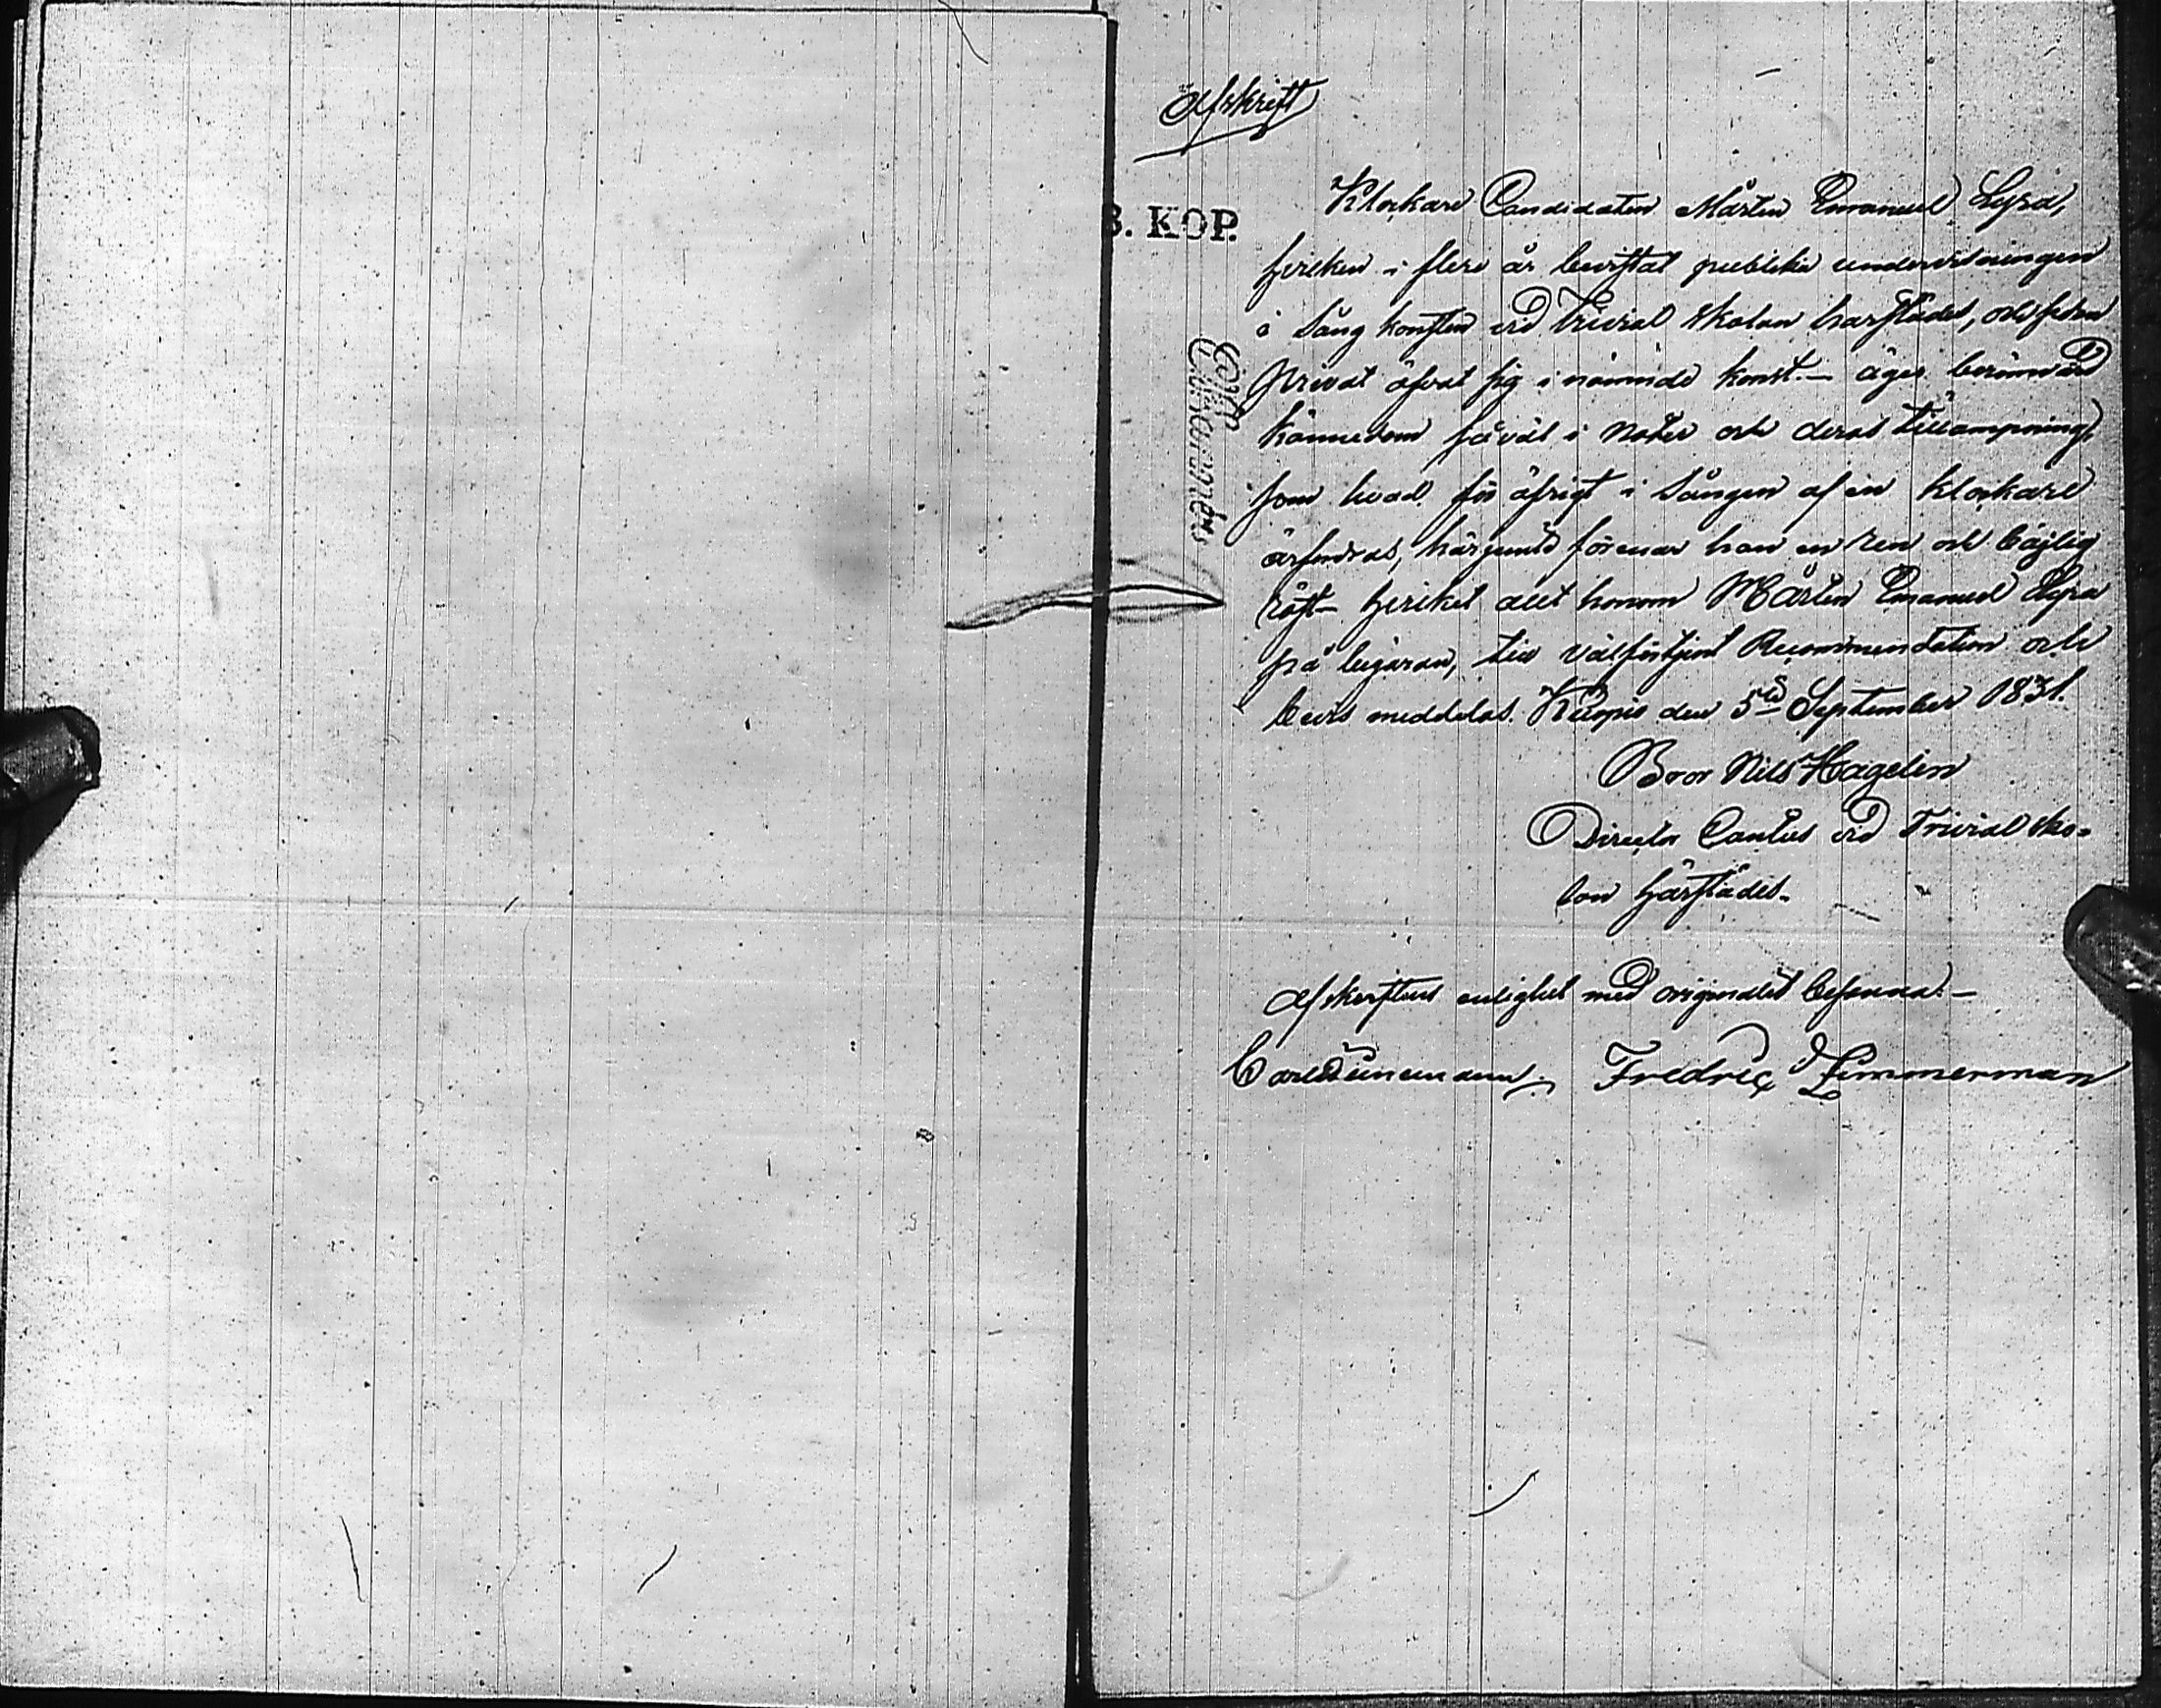 Afskrift
Klockare Candidaten Mårten Emanuel Lyra,
hvilken i flere år bevistat publika undervisningen
i Sång konsten vid Trivial Skolan härstädes, och sedan
privat öfvat sig i nämnde konst. — äger berömvärd
kännedom såväl i Noter och deras tillämpning,
B. KOP.
som hvad för öfrigt i Sången af en klockare
ärfordras, härjemte förenar han en ren och böjlig
röst — hvilket allt honom Mårten Emanuel Lyra
på begäran, till välförtjent Recommendation och
bevis meddelas. Kuopio den 5te September 1831.
Bror Nils Hagelin
Director Cantus vid Trivial sko-
lan härstädes.
Afskriftens enlighet med originalet besanna. —
Fredric Zimmerman